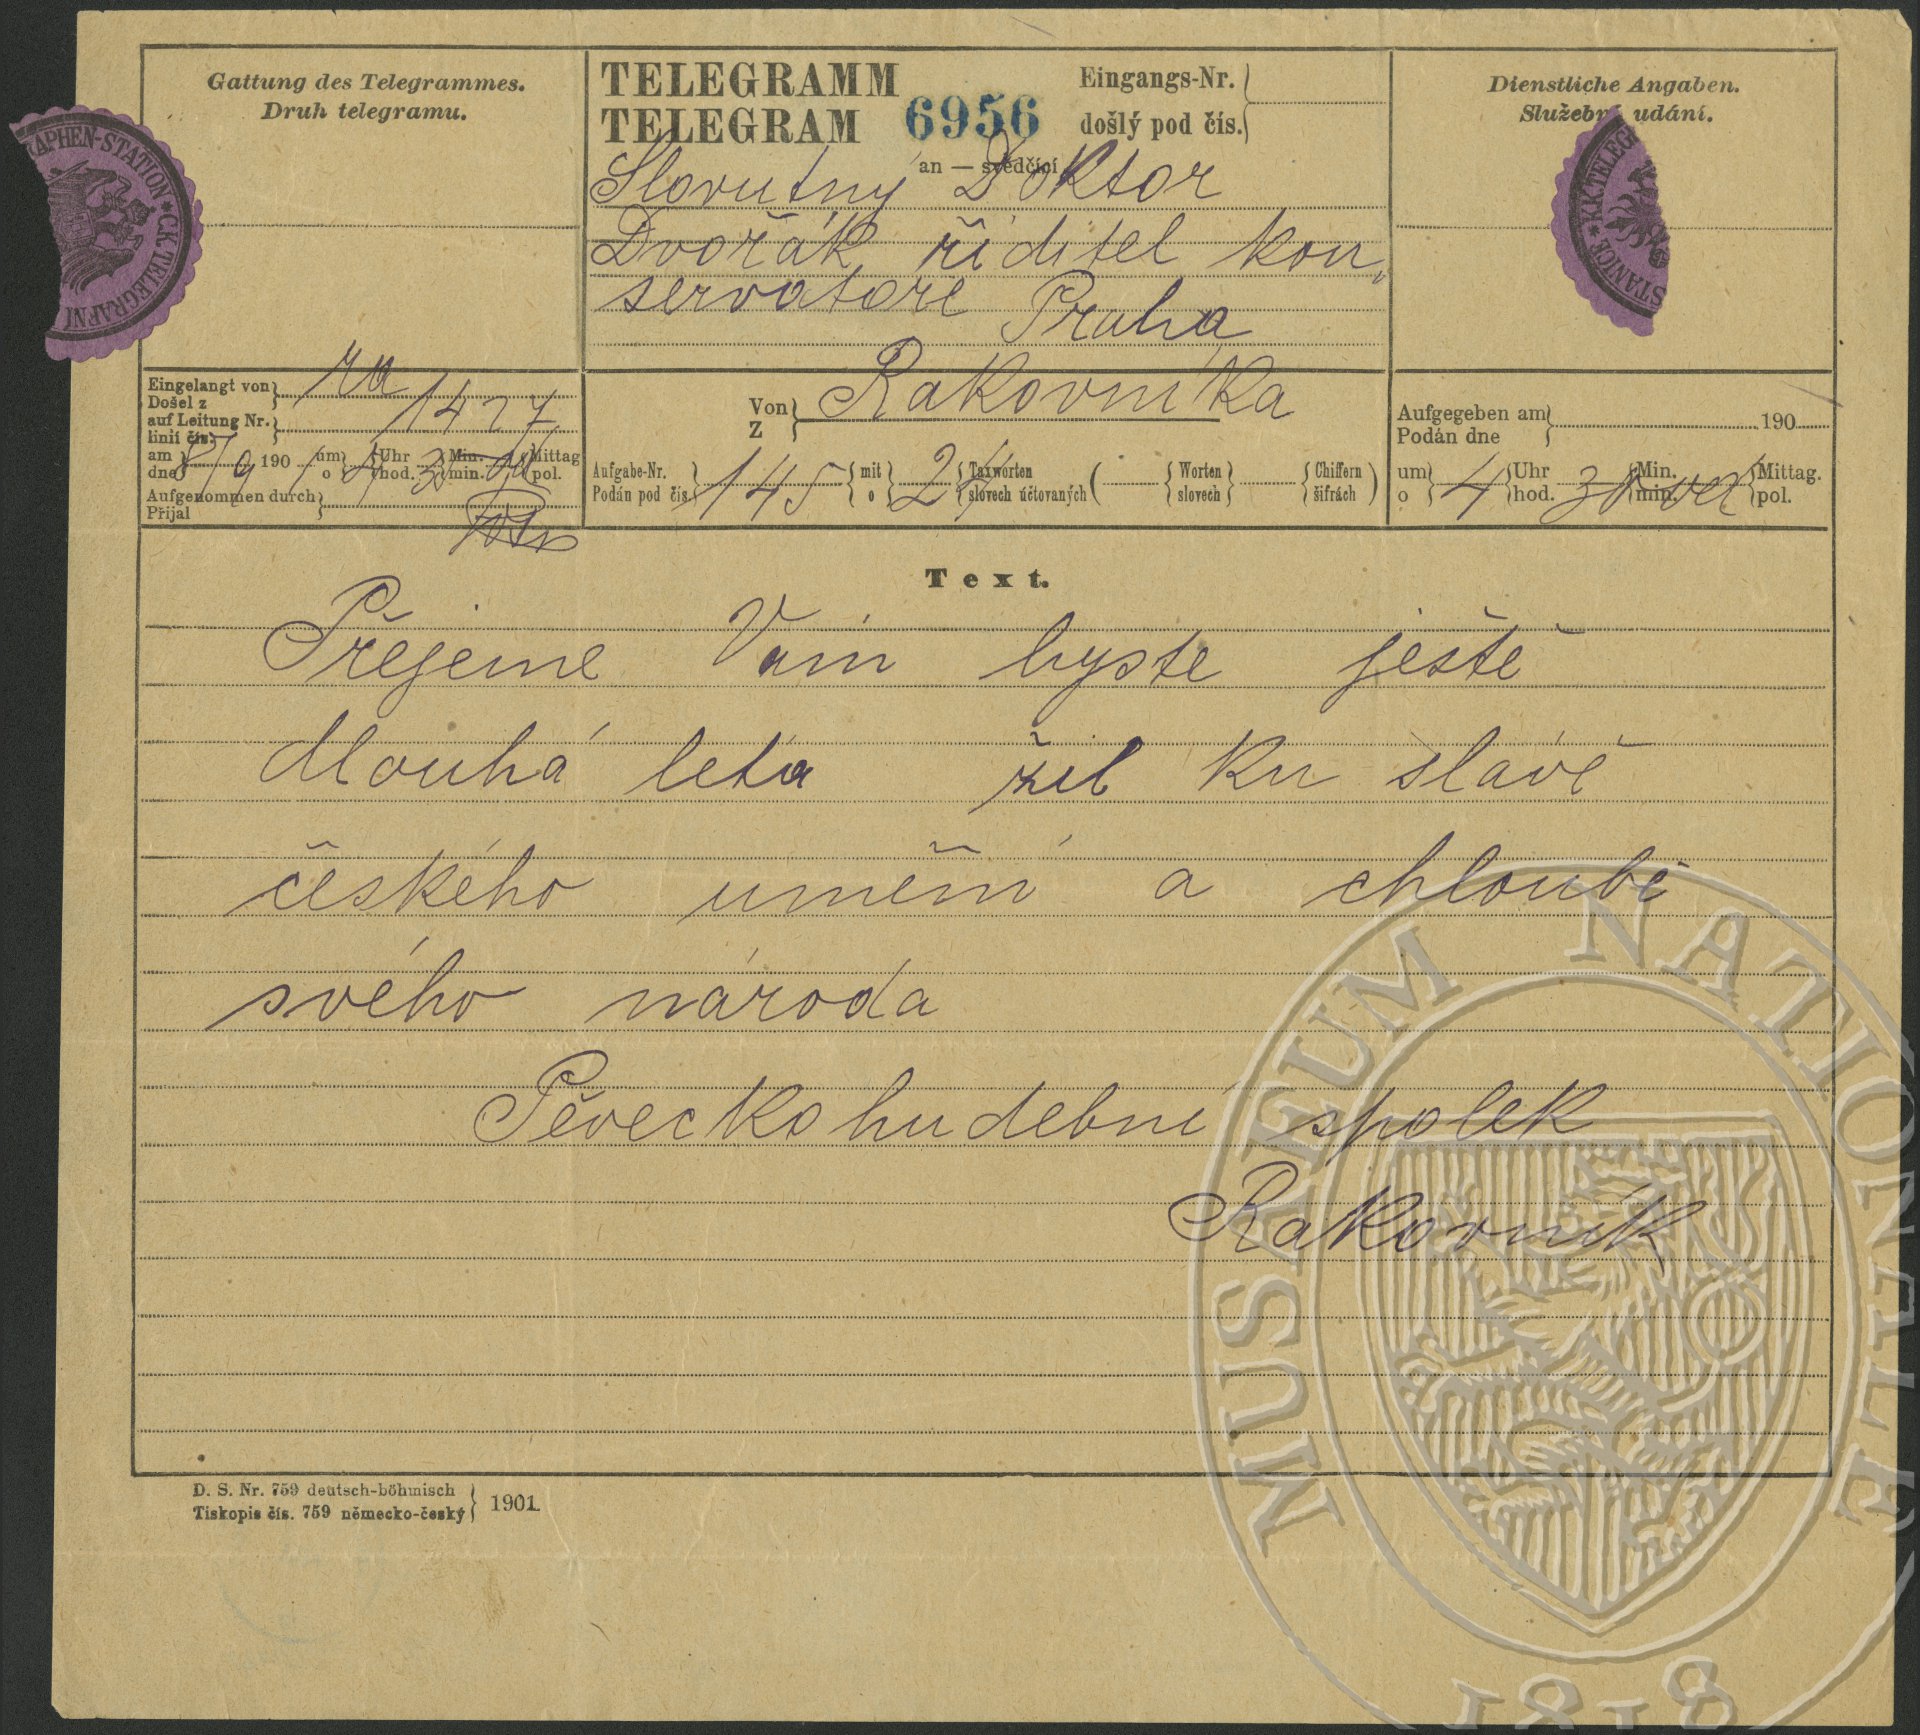 Gattung des Telegrammes.
Druh telegramu.
TELEGRAMM
TELEGRAM
6956
Eingangs-Nr.
došlý pod čís.
Dienstliche Angaben.
Služebné udání.
an — svědčící
Slovutný Doktor
Dvořák řiditel kon„
servatoře Praha
RAPHEN-STATION * C.K. TELEGRAFNI
STANICE * K.K. TELEGR
Eingelangt von
Došel z
auf Leitung Nr.
linií čís.
1427
am
dne
8/9 190
um
o
Uhr
hod.
Min.
min.
Mittag
pol.
Aufgenommen durch
Přijal
Von
Z
Rakovníka
Aufgabe-Nr.
Podán pod čís.
145
mit
o
24
Taxworten
slovech účtovaných (
Worten
slovech
Chiffern
šifrách )
Aufgegeben am
Podán dne
190
um
o
4
Uhr
hod.
30
Min.
min.
Mittag.
pol.
Text.
Přejeme Vám byste ještě
dlouhá léta žil ku slávě
českého umění a chloubě
svého národa
Pěvecko hudební spolek
Rakovník
D. S. Nr. 759 deutsch-böhmisch
Tiskopis čís. 759 německo-český
1901.
MUSAEUM NATIONALE
1818